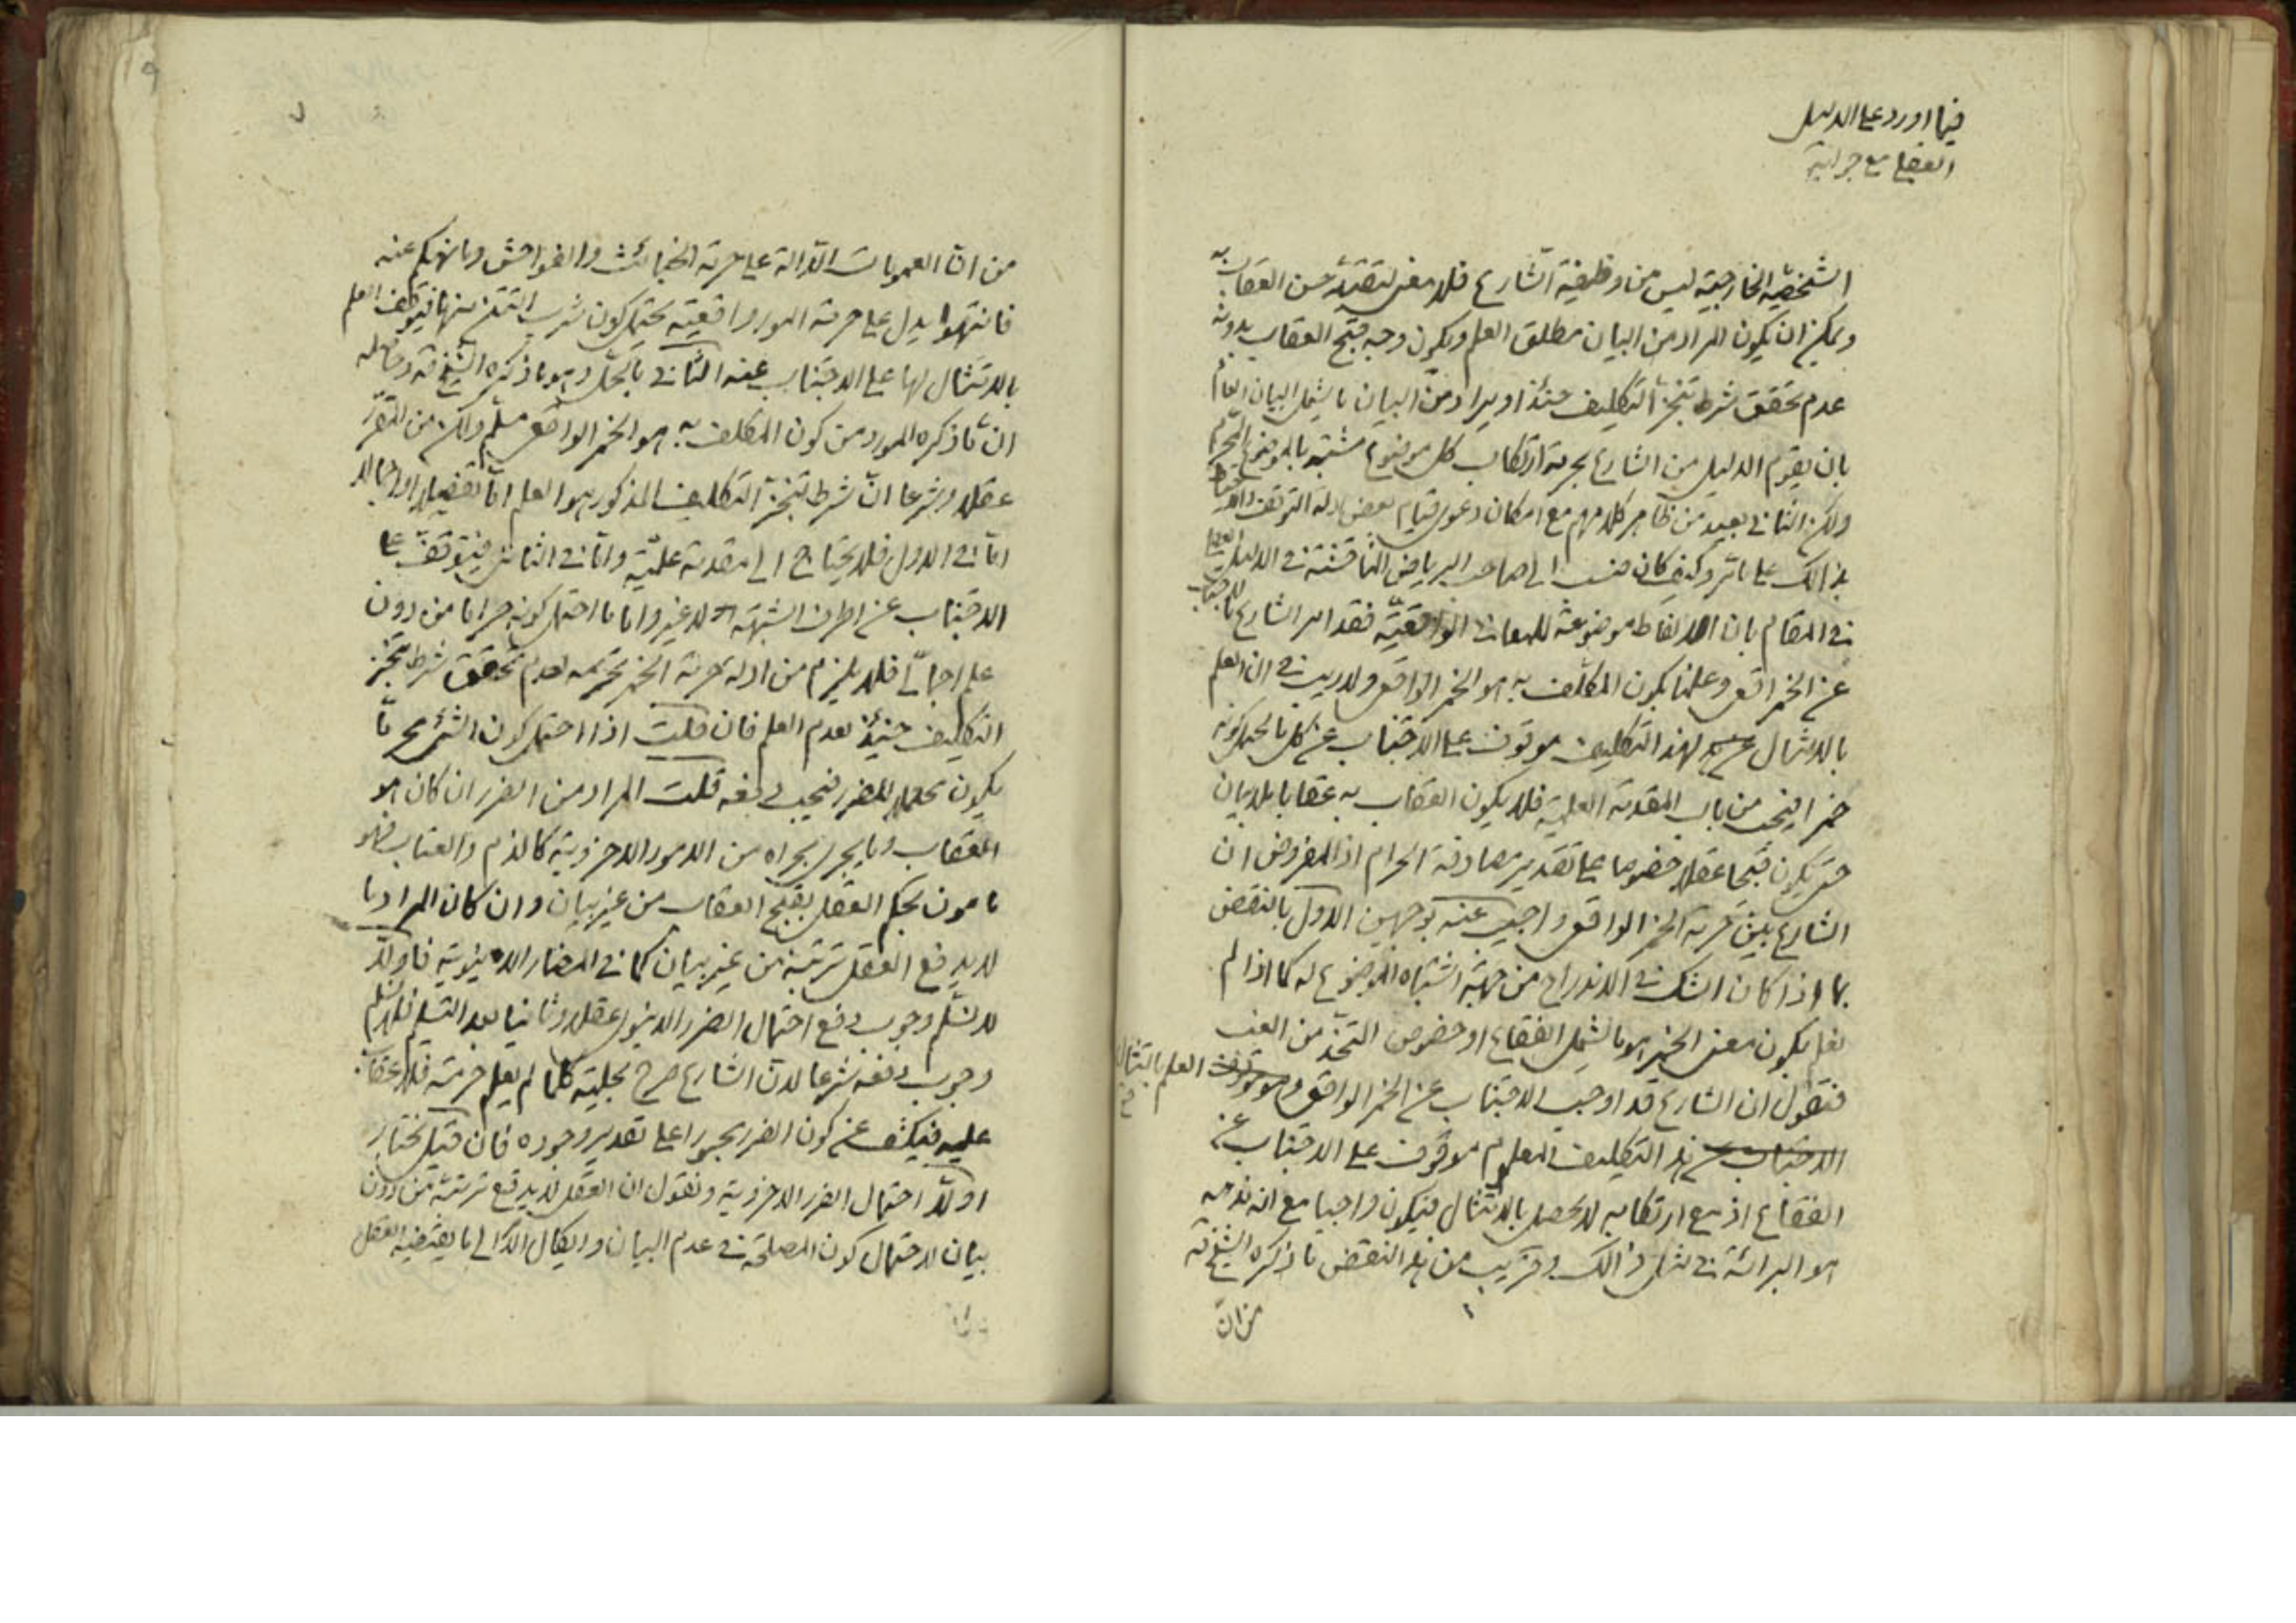 فيما اورد على الدليل
العقلي مع جوابه
الشخصية الخارجية ليس من وظيفة الشارع فلا معنى لتقييد حسن العقاب به
ويمكن ان يكون المراد من البيان مطلق العلم ويكون وجه قبح العقاب بدونه
عدم تحقق شرط تنجز التكليف حينئذ او يراد من البيان ما يشمل البيان العام
بان يقوم الدليل من الشارع بحرمة ارتكاب كل موضوع مشتبه بالموضوع المحرم
ولكن الثاني بعيد من ظاهر كلامهم مع امكان دعوى قيام بعض ادلة التوقف والاحتياط
بذالك على ما تر وكيف كان نسب الى صاحب الرياض المناقشة في الدليل العقلي
في المقام بان الالفاظ موضوعة للمعاني الواقعية فقد امر الشارع بالاجتناب
عن الخمر الواقعي وعلمنا بكون المكلف به هو الخمر الواقعي ولا ريب في ان العلم
بالامتثال لهذا التكليف موقوف على الاجتناب عن كل ما يحتمل كونه
خمرا فيجب من باب المقدمة العلمية فلا يكون العقاب به عقابا بلا بيان
حتى يكون قبيحا عقلا خصوصا على تقدير مصادفة الحرام اذ المفروض ان
الشارع بين حرمة الخمر الواقعي واجيب عنه بوجهين الاول بالنقض
بما اذا كان الشك في الاندراج من جهة اشتباه الموضوع له كما اذا لم
نعلم بكون معنى الخمر هو ما يشمل الفقاع او خصوص المتخذ من العنب
فنقول ان الشارع قد اوجب الاجتناب عن الخمر الواقعي و العلم بامتثال
هذا التكليف المعلوم موقوف على الاجتناب عن
الفقاع اذ مع ارتكابه لا يحصل بالامتثال فيكون واجبا مع ان مذهبه
هو البرائة في مثل ذالك وقريب من هذا النقض ما ذكره الشيخ قه
من ان
من ان العمومات الدالة على حرمة الخبائث والفواحش وما نهيكم عنه
فانتهوا يدل على حرمة امور واقعية يحتمل كون شرب التتن منها فيتوقف العلم
بالامتثال لها على الاجتناب عنه الثاني بالحل وهو ما ذكره الشيخ قه وحاصله
ان ما ذكره المورد من كون المكلف به هو الخمر الواقعي مسلم ولكن من المقرر
عقلا وشرعا ان شرط تنجز التكليف المذكور هو العلم اما تفصيلا او اجمالا
اما في الاول فلا يحتاج الى مقدمة علمية واما في الثاني فيتوقف على
الاجتناب عن اطراف الشبهة لا غير واما ما احتمل كونه حراما من دون
علم اجمالي فلا يلزم من ادلة حرمة الخمر تحريمه لعدم تحقق شرط تنجز
التكليف حينئذ لعدم العلم فان قلت اذا احتمل كون الشيء محرما
يكون محتملا للضرر فيجب دفعه قلت المراد من الضرر ان كان هو
العقاب وما يجري مجراه من الامور الاخروية كالذم والعتاب فهو
مامون بحكم العقل بقبح العقاب من غير بيان وان كان المراد ما
لا يدفع العقل ترتبه من غير بيان كما في المضار الدنيوية فاولا
لا نسلم وجوب دفع احتمال الضرر الدنيوي عقلا وثانيا بعد التسليم فلا نسلم
وجوب دفعه شرعا لان الشارع صرح بحلية كلما لم يعلم حرمته فلا عقاب
عليه فيكشف عن كون الضرر مجبورا على تقدير وجوده فان قيل نختار
اولا احتمال الضرر الاخروية ونقول ان العقل لا يدفع ترتبه من دون
بيان لاحتمال كون المصلحة في عدم البيان وايكال الامر الى ما يقتضيه العقل